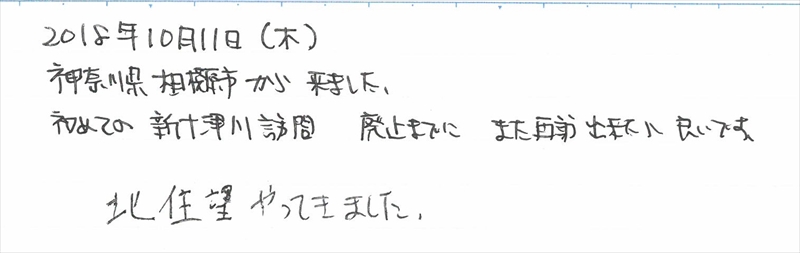 2018年10月11日（木）
神奈川県 相模原市から 来ました。
初めての 新十津川訪問 廃止までに また再訪出来れば良いです。
北住望 やってきました。